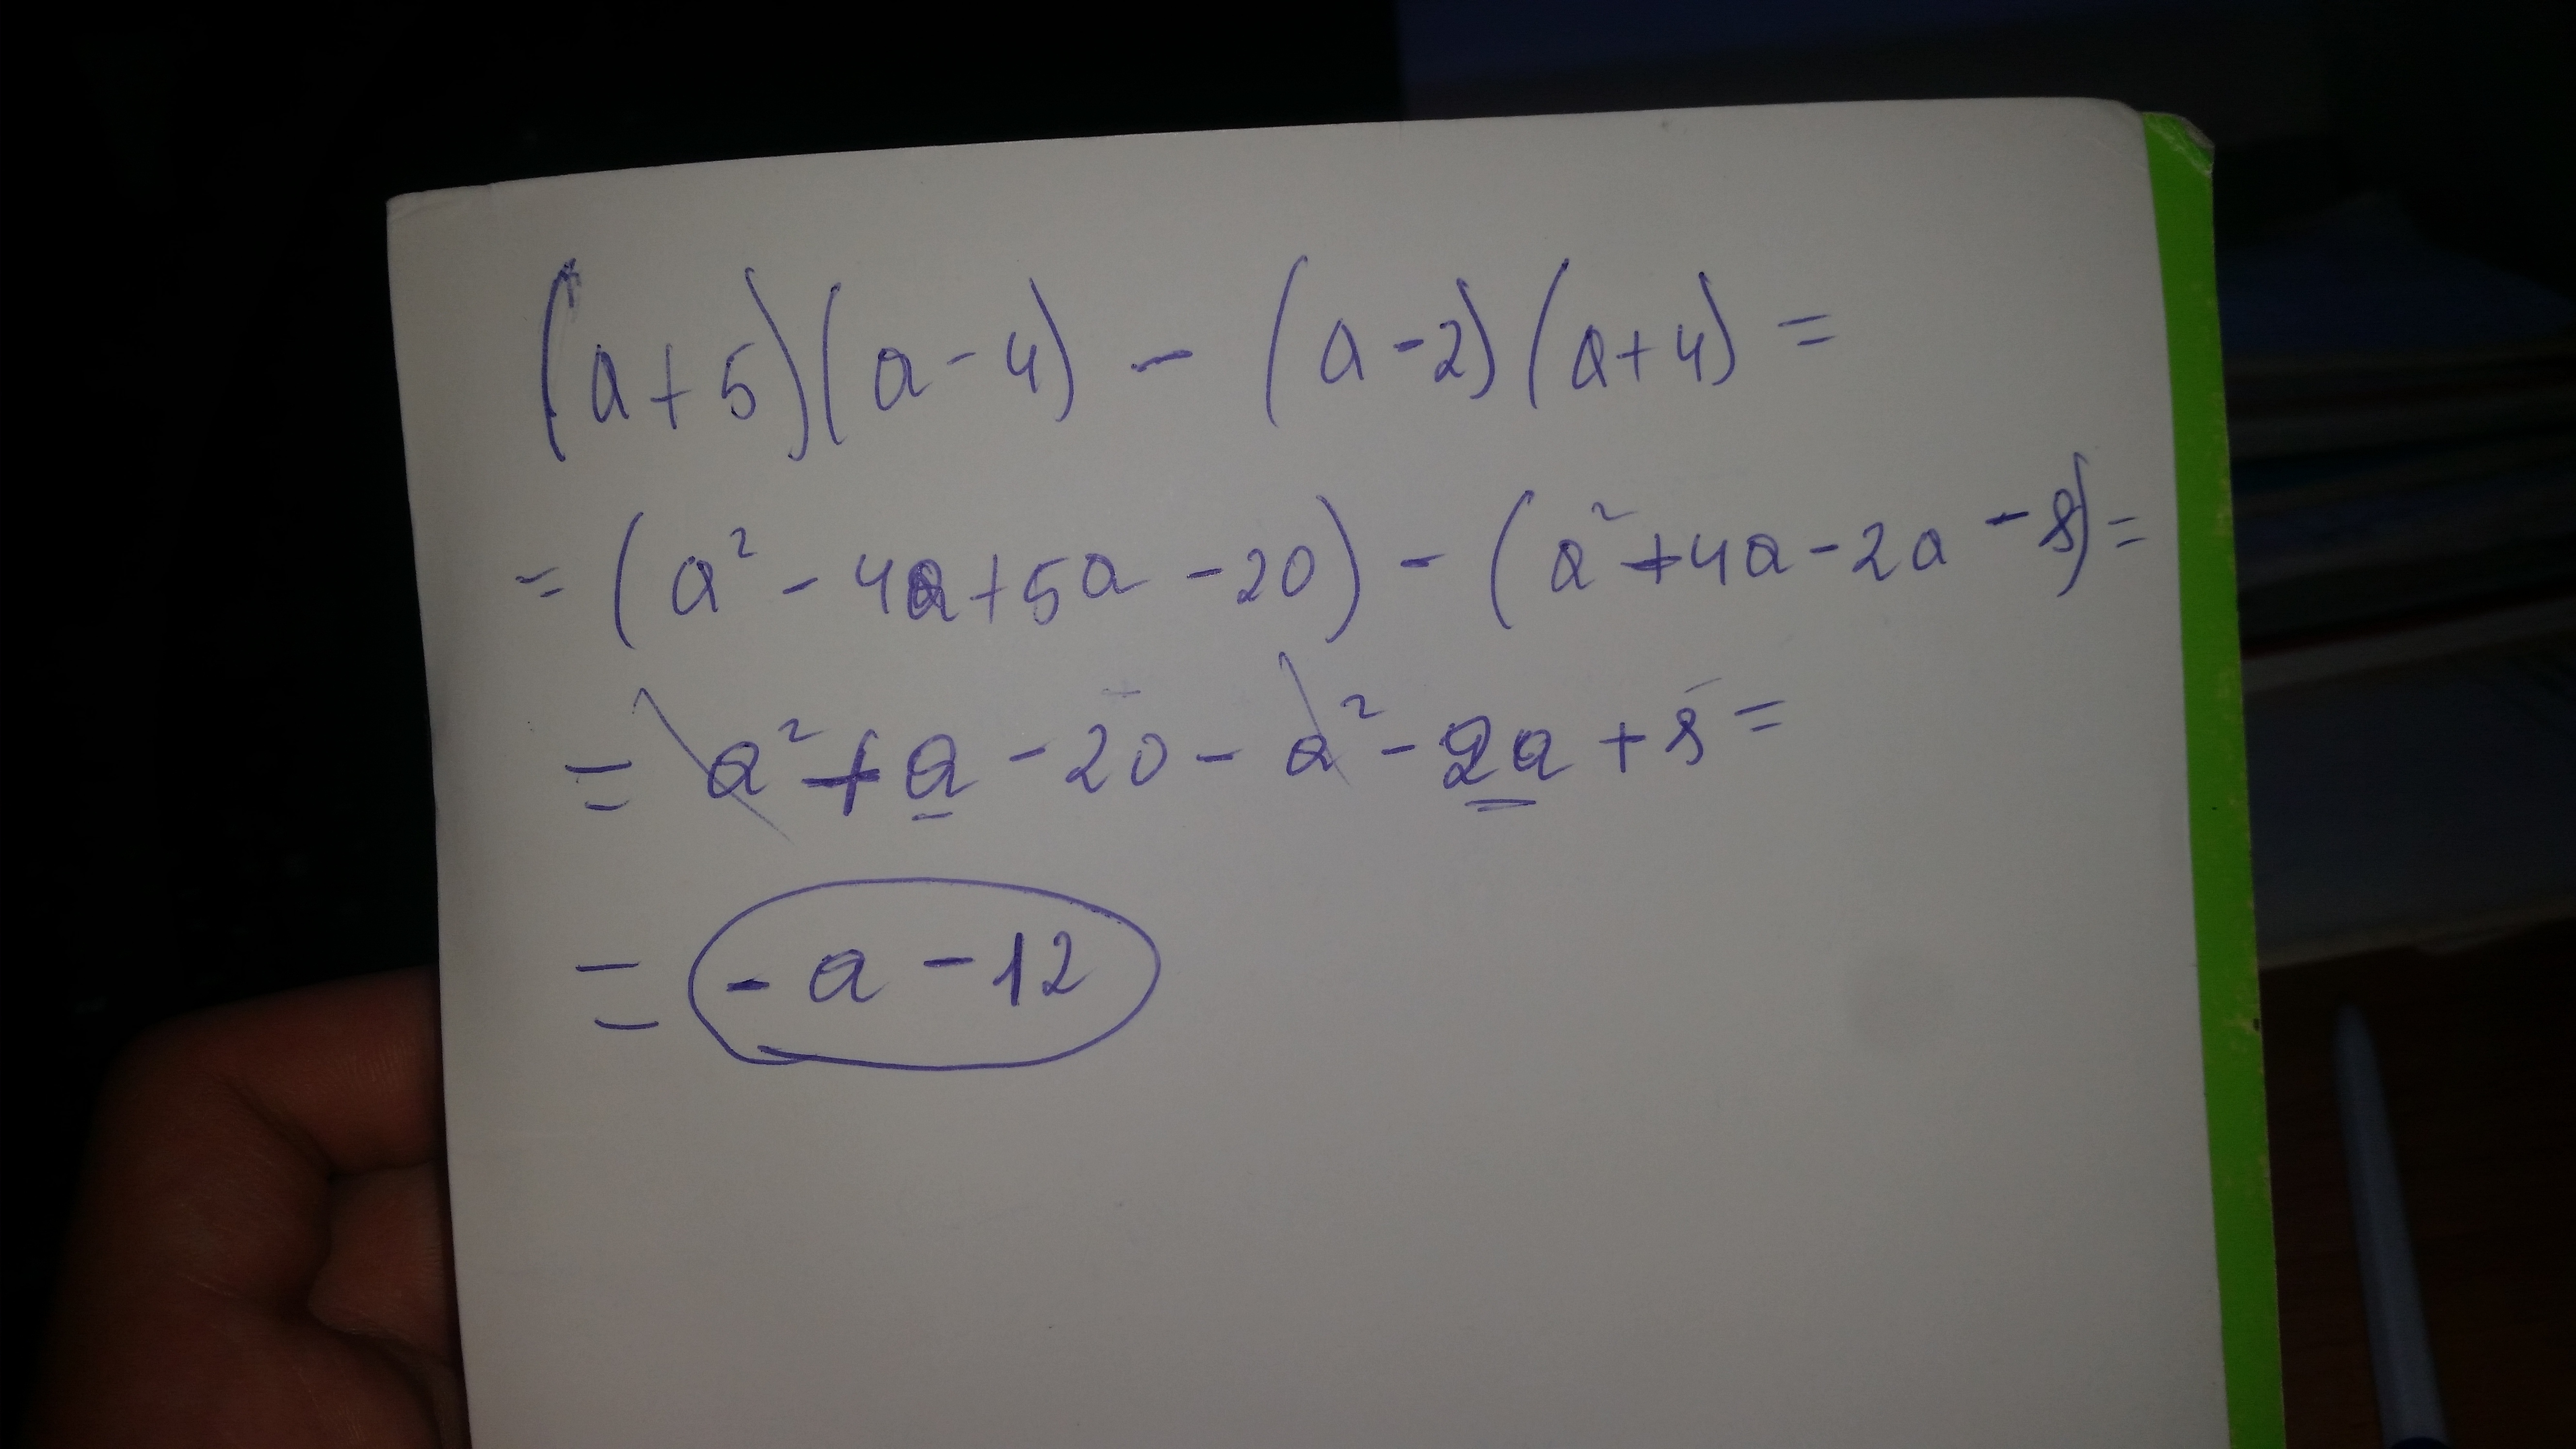 (a+5)(a-4) - (a-2)(a+4) =
= (a² - 4a + 5a - 20) - (a² + 4a - 2a - 8) =
= a² + a - 20 - a² - 2a + 8 =
= - a - 12